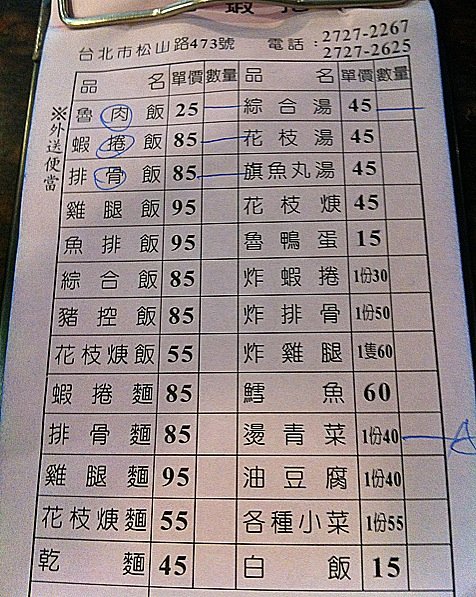 蝦捲
台北市松山路473號 電話:2727-2267
2727-2625
品名 單價 數量 品名 單價 數量
※外送便當
魯肉飯 25 綜合湯 45
蝦捲飯 85 花枝湯 45
排骨飯 85 旗魚丸湯 45
雞腿飯 95 花枝焿 45
魚排飯 95 魯鴨蛋 15
綜合飯 85 炸蝦捲 1份30
豬控飯 85 炸排骨 1份50
花枝焿飯 55 炸雞腿 1隻60
蝦捲麵 85 鱈魚 60
排骨麵 85 燙青菜 1份40
雞腿麵 95 油豆腐 1份40
花枝焿麵 55 各種小菜 1份55
乾麵 45 白飯 15